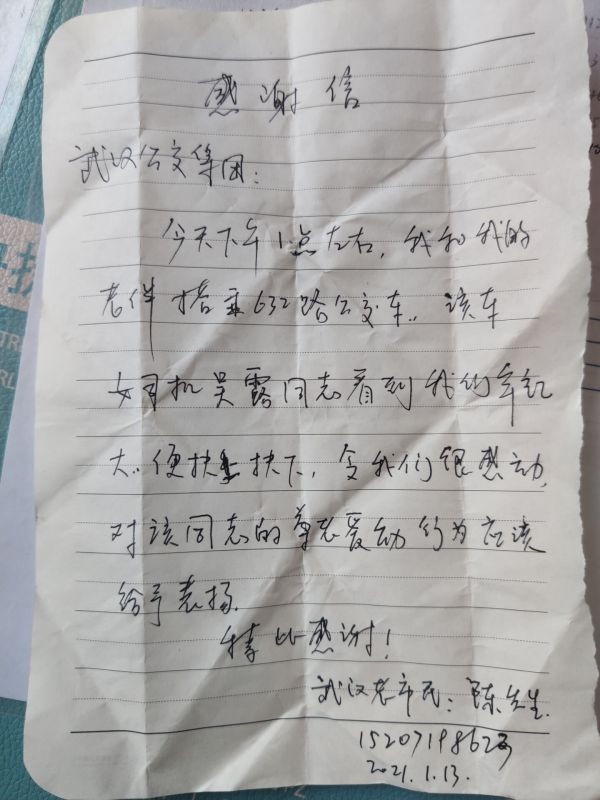 感谢信
武汉公交集团：
今天下午1点左右，我和我的
老伴搭乘632路公交车，该车
女司机吴露同志看到我们年纪
大，便扶上扶下，令我们很感动，
对该同志的尊老爱幼行为应该
给予表扬。
特此感谢！
武汉老市民：陈先生
15207198623
2021.1.13.